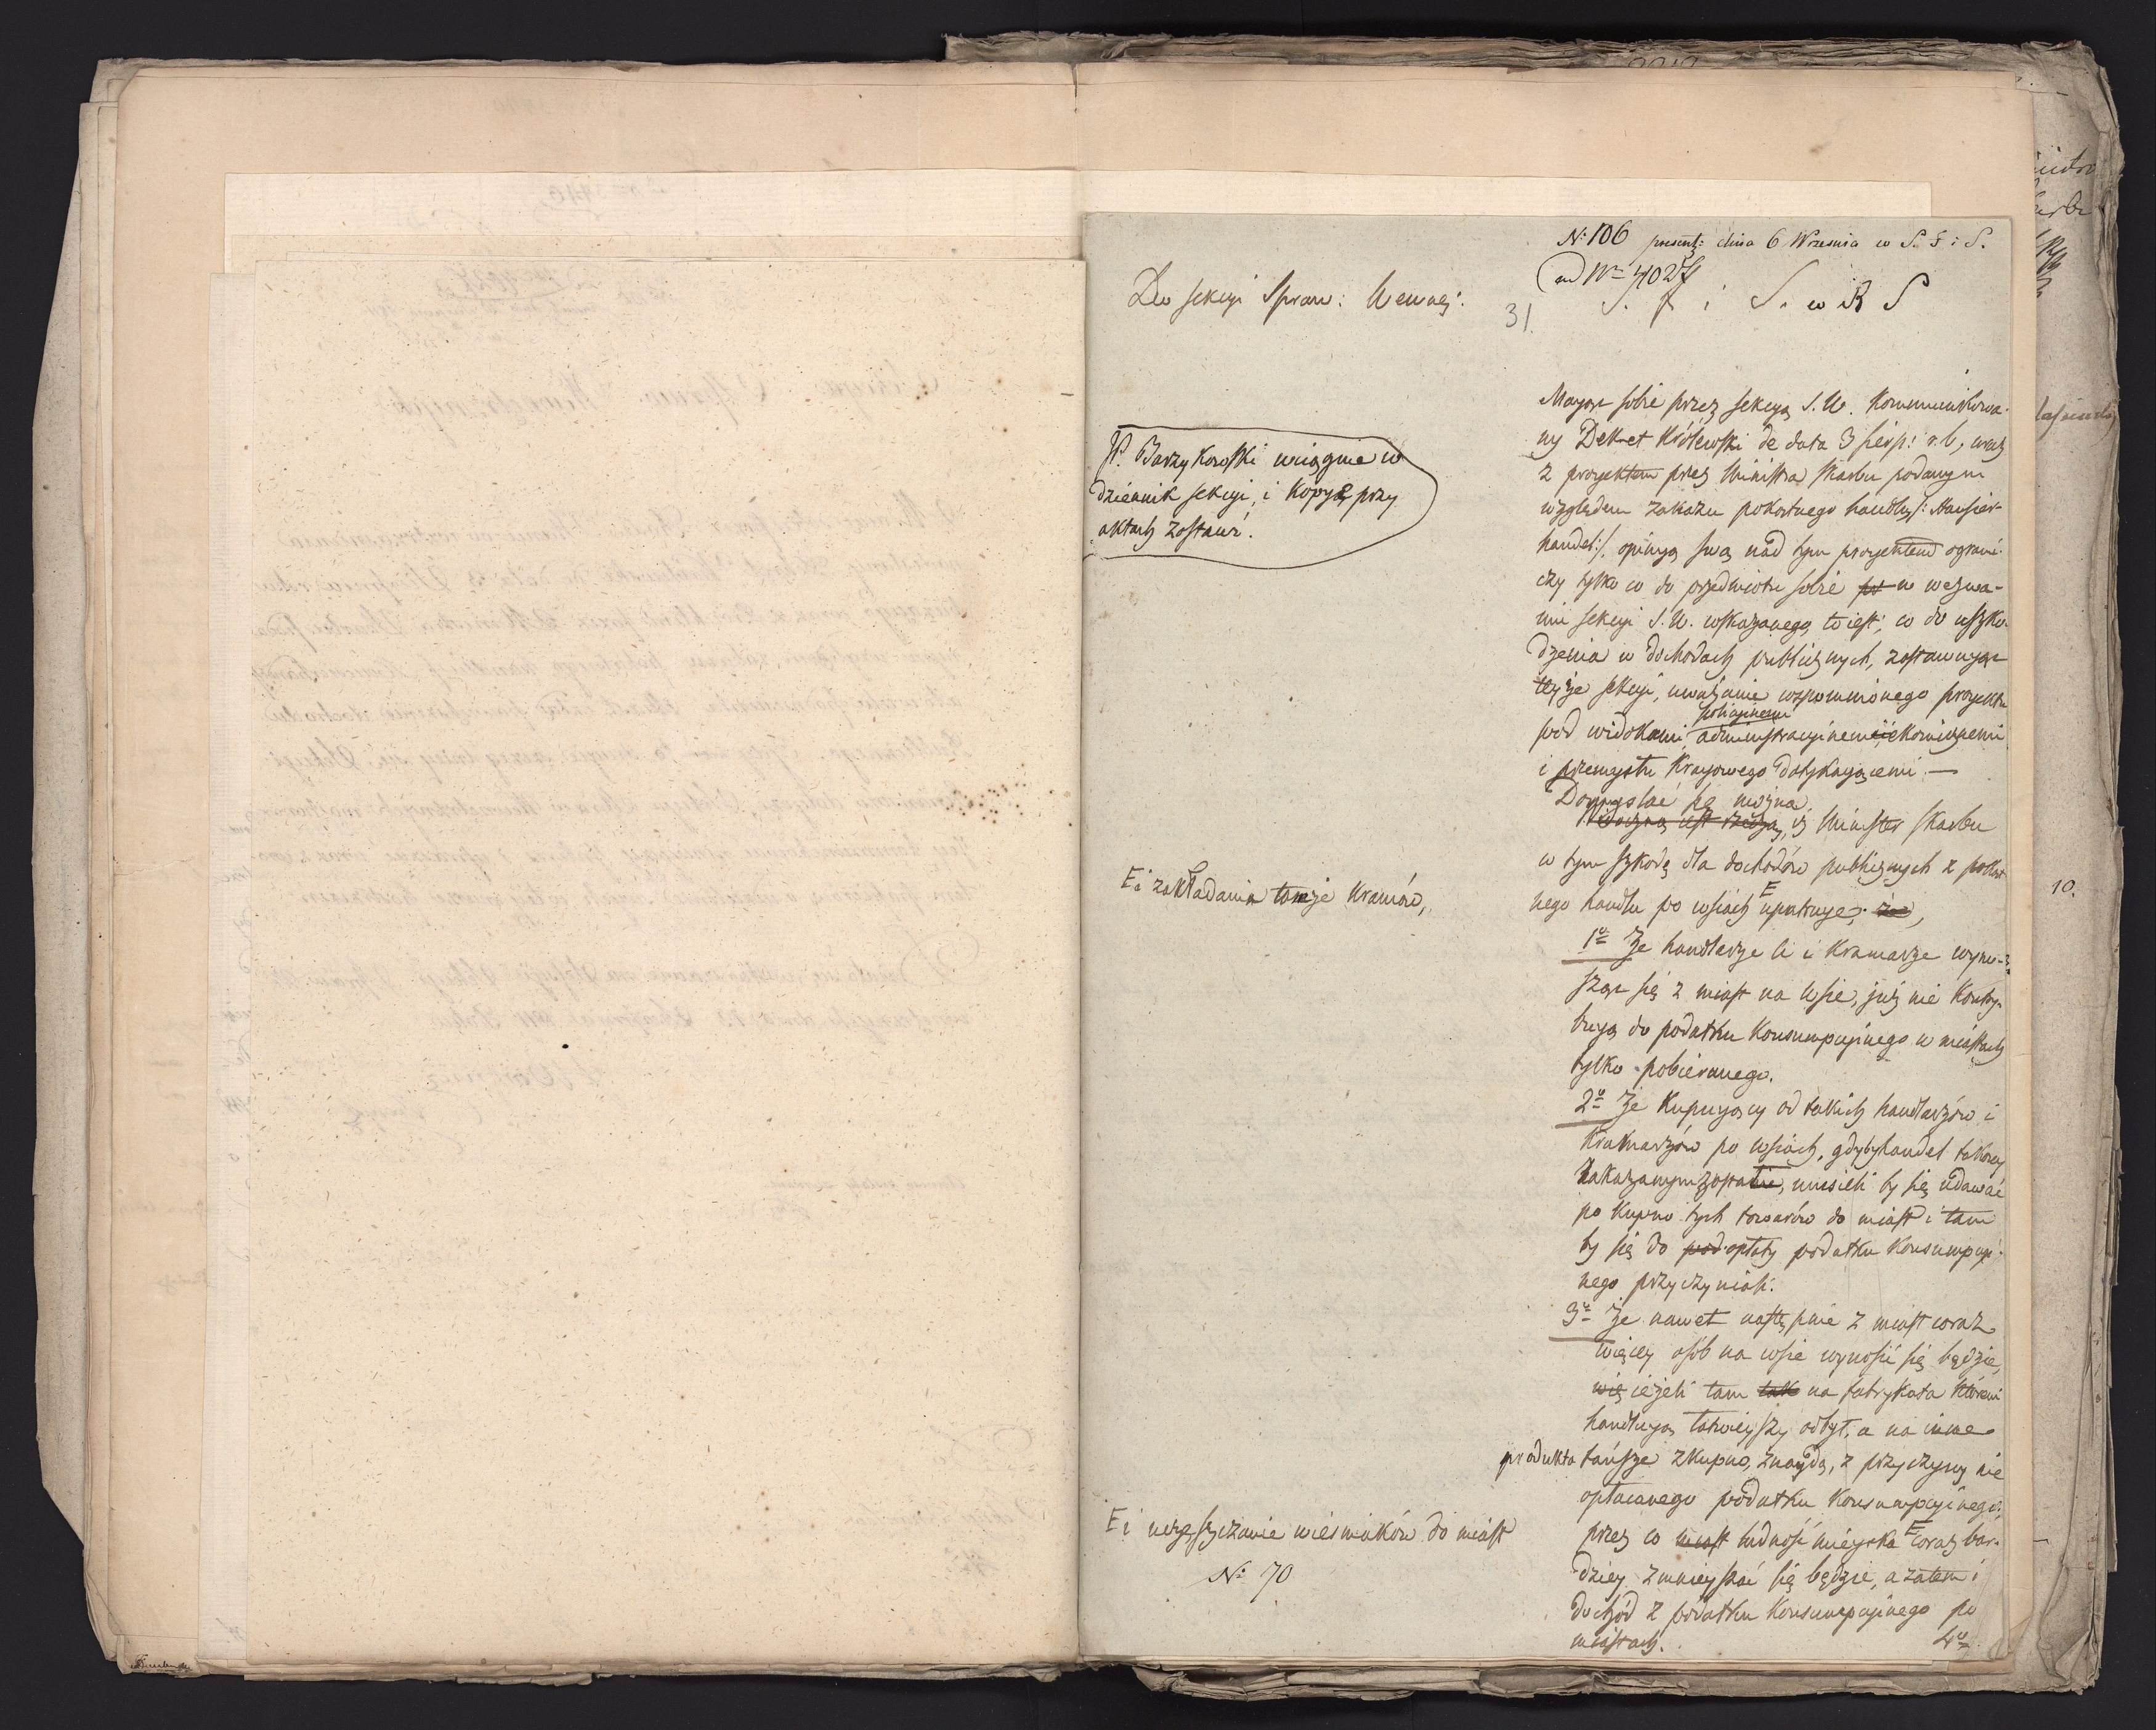 N: 106 present: dnia 6 Wrzesnia w S. S: i S.
ad Nr 4027
Do sekcyi Spraw: Wewnę:
31.
S. i S. w R S
P. Barzykowski wciągnie w
dziennik sekcyi, i kopyę przy
aktach zostawi.
Mając sobie przez sekcyą S. W. kommunikowa-
ny Dekret Królewski de data 3 sierp: r. b, wraz
z projektem przez Ministra Skarbu podanym
względem zakazu pokątnego handlu /: Hausier-
handel:/. opinyą swą nad tym projektem ograni-
czy tylko co do przedmiotu sobie w wezwa-
niu sekcyi S. W. wskazanego, to iest, co do uszko-
dzenia w dochodach publicznych, zostawując
teyże sekcyi, uważanie wspomnionego projektu
policyinemi
pod widokami, administracyinemi, ekonicznemi
i przemysłu Krajowego dotykającemi. —
Domyslać się można,
Widoczną iest rzeczą, iż Minister Skarbu
w tym szkodę dla dochodów publicznych z pokąt-
nego handlu po wsiach E upatruje,
E i zakładania tamże kramów,
1o Że handlarze ci i kramarze wyno-
sząc się z miast na wsie, już nie kontry-
buyą do podatku konsumpcyinego w miastach
tylko pobieranego.
2o Że kupuyący od takich handlarzów i
kramarzów po wsiach, gdyby handel takowy
zakazanym został, musieli by się udawać
po kupno tych towarów do miast i tam
by się do opłaty podatku konsumpcyi-
nego przyczyniali.
3o Że nawet następnie z miast coraz
więcey osób na wsie wynosić się będzie,
ieżeli tam tak na fabrykata któremi
handluyą łatwieyszy odbyt, a na inne
produkta tańsze zkupno, znaydą, z przyczyny nie
opłacanego podatku konsumpcyinego,
przez co miast ludność mieyska E coraz bar-
dziey zmnieyszać się będzie, a zatem i
dochód z podatku konsumpcyinego po
miastach.
E i uczęszczanie wieśniaków do miast
N: 70
4o
10.